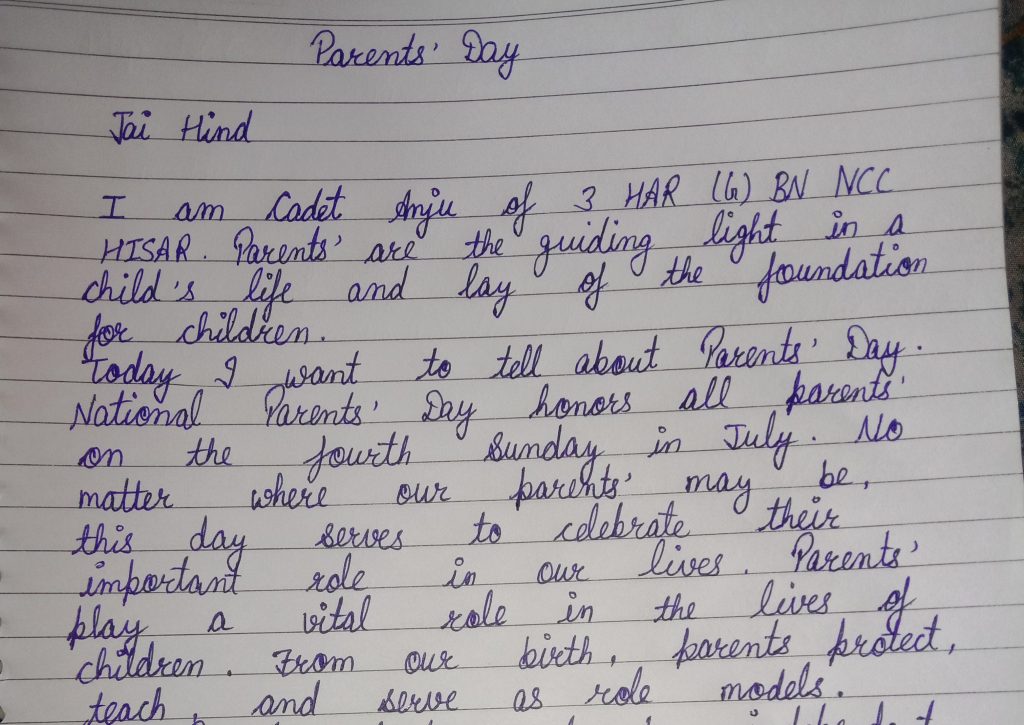 Parents' Day
Jai Hind
I am Cadet Anju of 3 HAR (G) BN NCC
HISAR. Parents' are the guiding light in a
child's life and lay of the foundation
for children.
Today I want to tell about Parents' Day.
National Parents' Day honors all parents'
on the fourth Sunday in July. No
matter where our parents' may be,
this day serves to celebrate their
important role in our lives. Parents'
play a vital role in the lives of
children. From our birth, parents protect,
teach, and serve as role models.